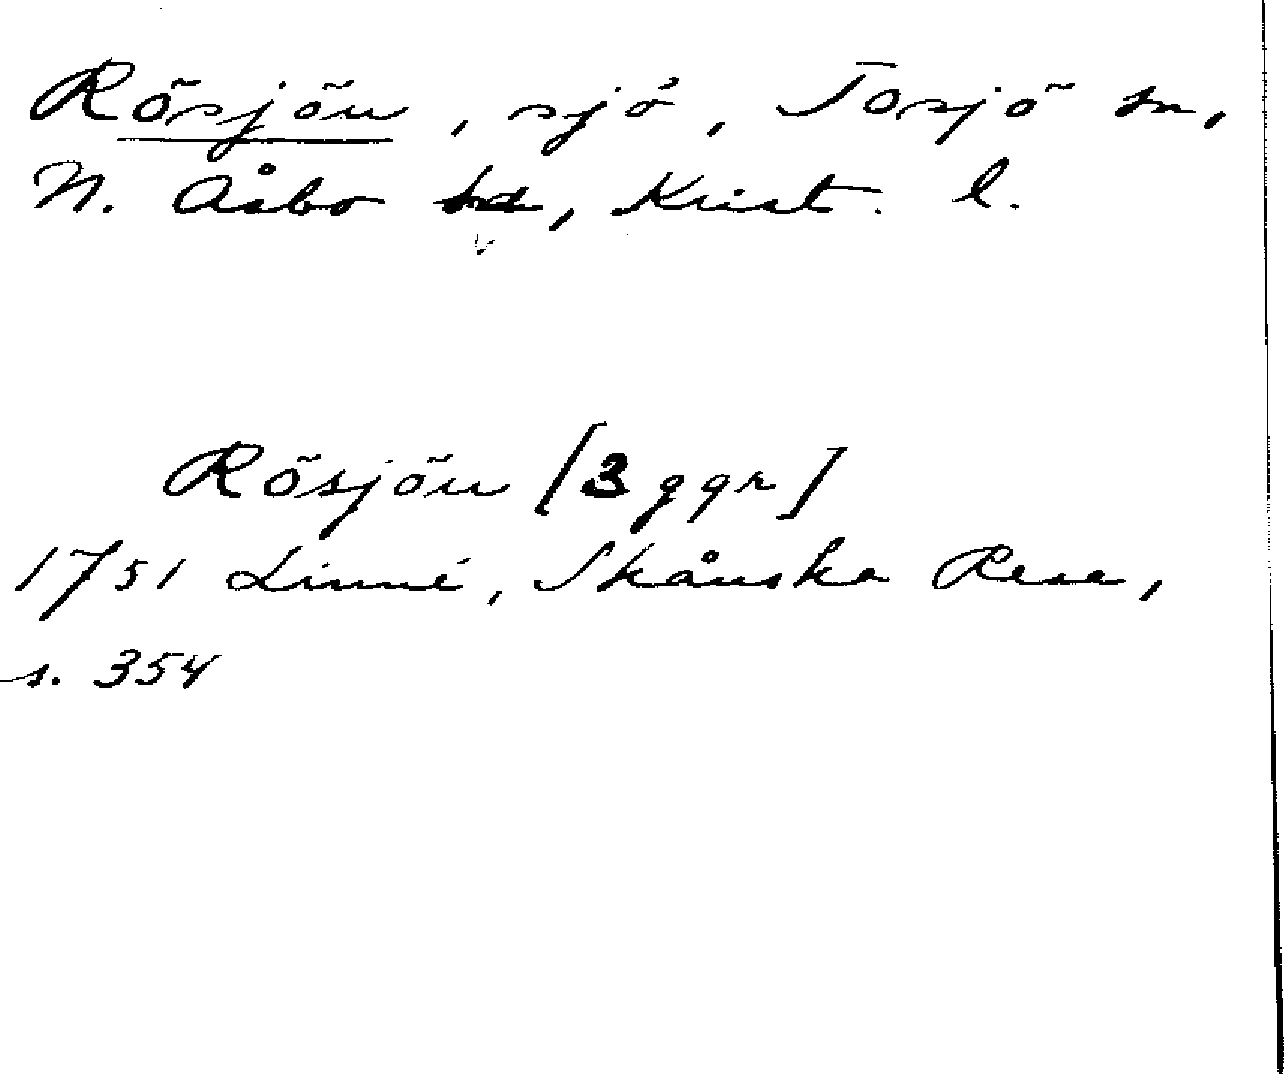 Rösjön, sjö, Tosjö sn,
N. Åsbo hd, Krist. l.
Rösjön [3 ggr]
1751 Linné, Skånska Resa,
s. 354